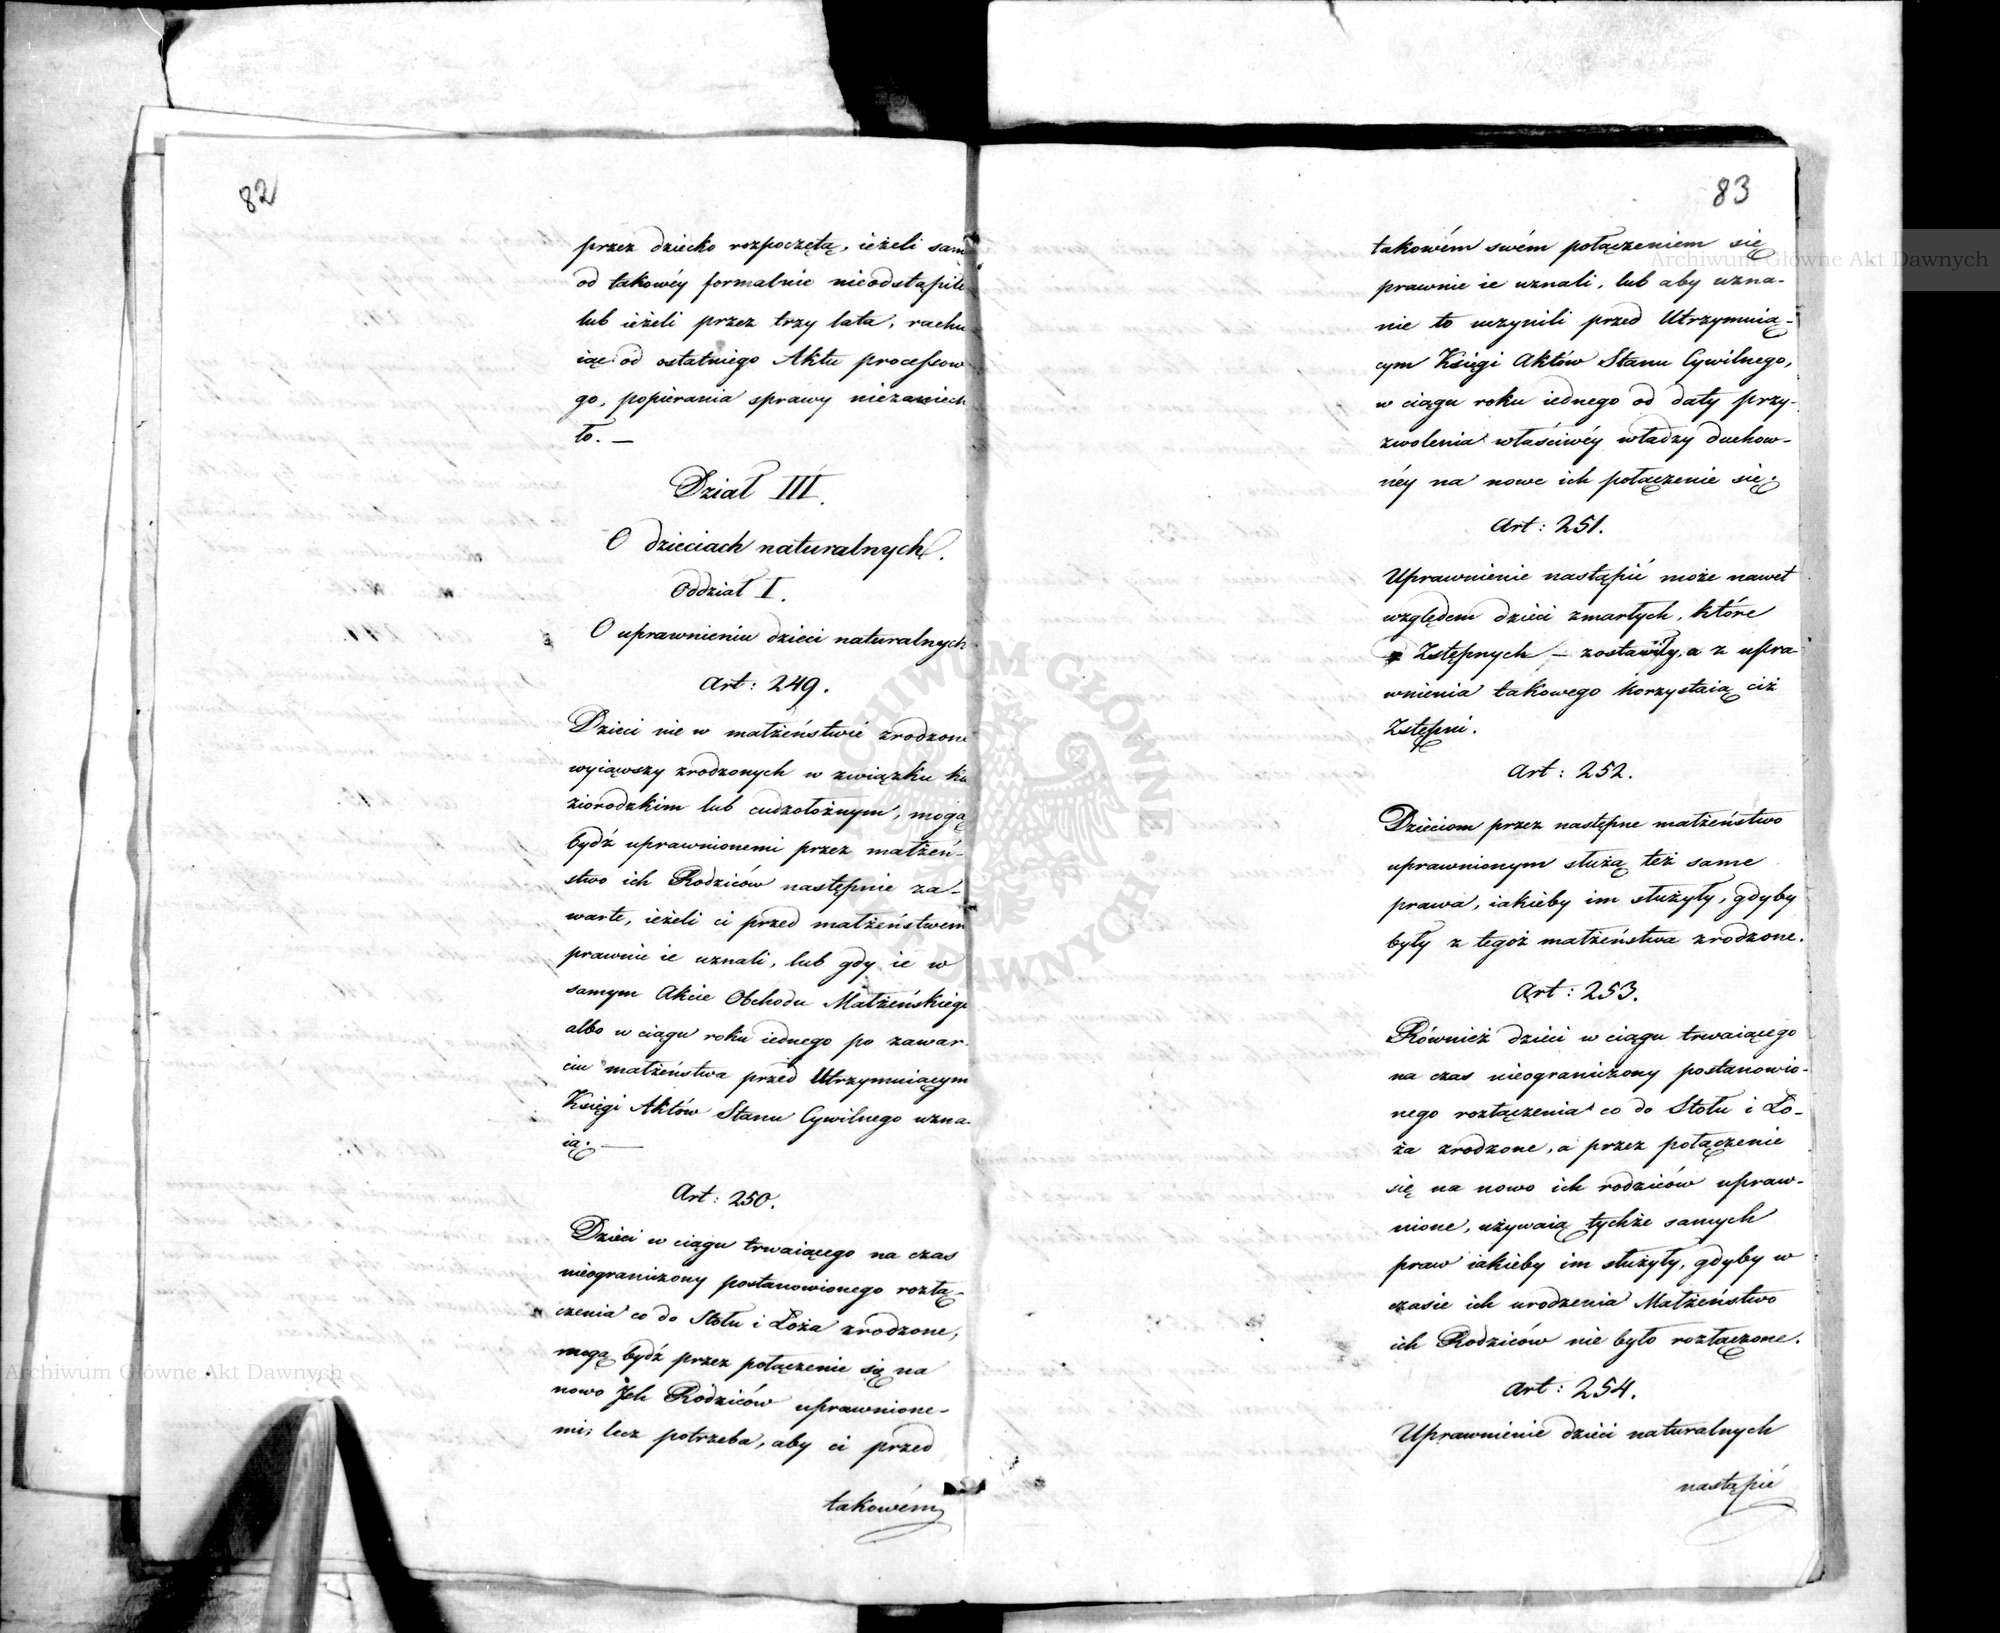 82
przez dziecko rozpoczętą, ieżeli sam
od takowéy formalnie nieodstąpili
lub ieżeli przez trzy lata, rachu
iąc od ostatniego Aktu processow
go, popierania sprawy niezaniech
ło. —
Dział III.
O dzieciach naturalnych.
Oddział I.
O uprawnieniu dzieci naturalnych
Art: 249.
Dzieci nie w małżeństwie zrodzone
wyiąwszy zrodzonych w związku ka
ziorodzkim lub cudzołożnym, mogą
bydź uprawnionemi przez małżeń-
stwo ich Rodziców następnie za-
warte, ieżeli ci przed małżeństwem
prawnie ie uznali, lub gdy ie w
samym Akcie Obchodu Małżeńskiego
albo w ciągu roku iednego po zawar-
ciu małżeństwa przed Utrzymuiącym
Księgi Aktów Stanu Cywilnego uzna-
ią. —
Art: 250.
Dzieci w ciągu trwaiącego na czas
nieograniczony postanowionego rozłą-
czenia co do Stołu i Łoża zrodzone,
mogą bydź przez połączenie się na
nowo Ich Rodziców uprawnione-
mi; lecz potrzeba, aby ci przed
takowém
83
takowém swém połączeniem się
prawnie ie uznali, lub aby uzna-
nie to uczynili przed Utrzymuią-
cym Księgi Aktów Stanu Cywilnego,
w ciągu roku iednego od daty przy-
zwolenia właściwéy władzy duchow-
néy na nowe ich połączenie się.
Art: 251.
Uprawnienie nastąpić może nawet
względem dzieci zmarłych, które
Zstępnych — zostawiły, a z upra-
wnienia takowego korzystaią ciż
Zstępni.
Art: 252.
Dzieciom przez następne małżeństwo
uprawnionym służą też same
prawa, iakieby im służyły, gdyby
były z tegoż małżeństwa zrodzone.
Art: 253.
Również dzieci w ciągu trwaiącego
na czas nieograniczony postanowio-
nego rozłączenia co do Stołu i Ło-
ża zrodzone, a przez połączenie
się na nowo ich rodziców upraw-
nione, używaią tychże samych
praw iakieby im służyły, gdyby w
czasie ich urodzenia Małżeństwo
ich Rodziców nie było rozłączone.
Art: 254.
Uprawnienie dzieci naturalnych
nastąpić
Archiwum Główne Akt Dawnych
Archiwum Główne Akt Dawnych
ARCHIWUM GŁÓWNE AKT DAWNYCH